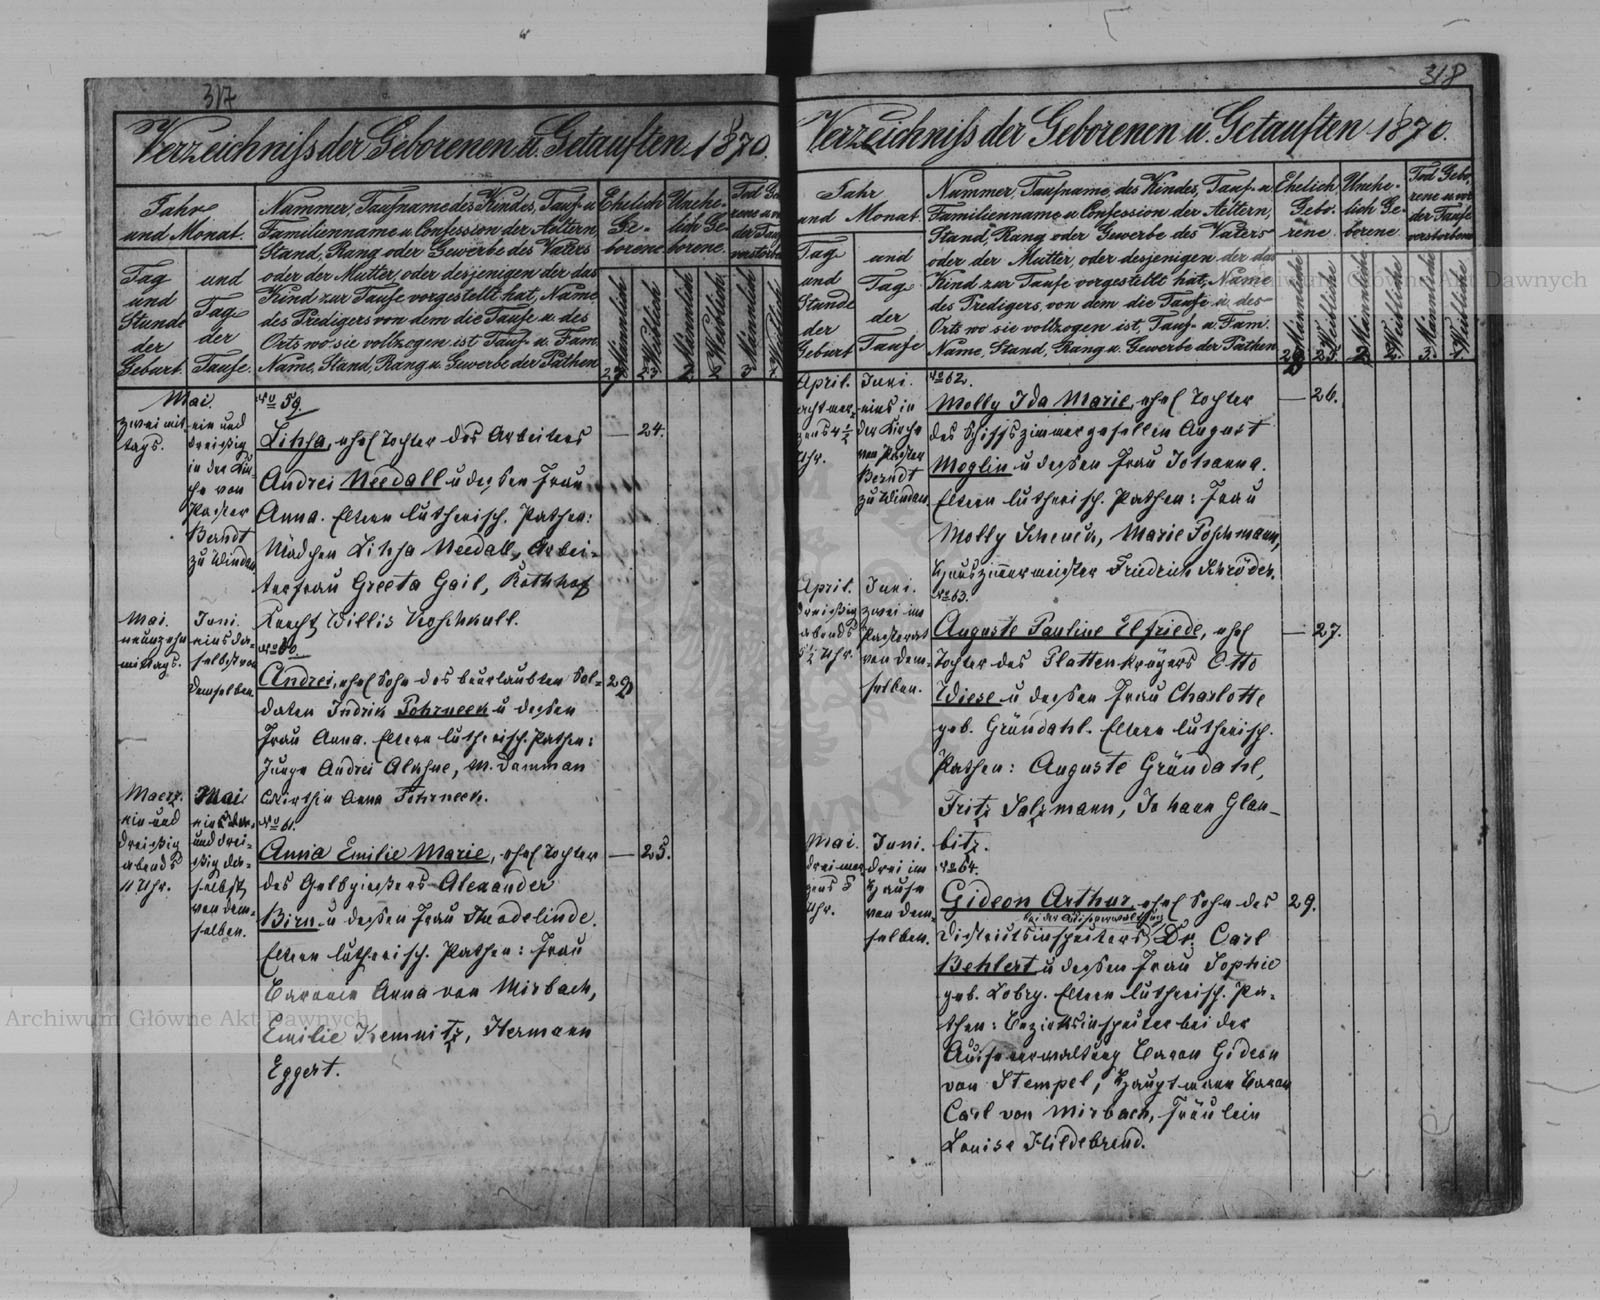 317
Verzeichniß der Geborenen u. Getauften 1870.
Jahr
und Monat.
Tag
und
Stunde
der
Geburt.
und
Tag
der
Taufe.
Nummer, Taufname des Kindes, Tauf- u
Familienname u Confession der Aeltern,
Stand, Rang oder Gewerbe des Vaters
oder der Mutter, oder desjenigen der das
Kind zur Taufe vorgestellt hat, Name
des Predigers von dem die Taufe u. des
Orts wo sie vollzogen ist Tauf- u Fam.
Name, Stand, Rang u. Gewerbe der Pathen
Ehelich
Ge-
borene.
Unehe-
lich Ge-
borene.
Männlich
Weiblich
Männlich
Weiblich
Männlich
Weiblich
Mai.
zwei mit-
tags.
ein und
dreißig
in der Kir-
che von
Pastor
Berndt
zu Windau
No 59.
Lihsa, ehel Tochter des Arbeiters
Andrei Needall u dessen Frau
Anna. Eltern lutherisch. Pathen:
Mädchen Lihsa Needall, Arbei-
terfrau Greeta Gail, Rothhof
Knecht Willis Kroschkull.
— 24.
Mai.
neunzehn
mittags.
Juni.
eins da-
selbst von
demselben
No 60.
Andrei, ehel Sohn des beurlaubten Sol-
daten Indrik Pohrneek u dessen
Frau Anna. Eltern lutherisch. Pathen:
Junge Andrei Alksne, M. Damman
Wirthin Anna Pohrneek.
28
Maerz.
ein und
dreißig
abends
11 Uhr.
Mai
ein
und drei-
ßig da-
selbst
von dem-
selben.
No 61.
Anna Emilie Marie, ehel Tochter
des Gelbgießers Alexander
Birn u dessen Frau Theodelinde.
Eltern lutherisch. Pathen: Frau
Baronin Anna von Mirbach,
Emilie Kemnitz, Hermann
Eggert.
— 25.
318
Verzeichniß der Geborenen u. Getauften 1870.
Jahr
und Monat.
Tag
und
Stunde
der
Geburt
und
Tag
der
Taufe
Nummer, Taufname des Kindes, Tauf- u
Familienname u Confession der Aeltern,
Stand, Rang oder Gewerbe des Vaters
oder der Mutter, oder desjenigen der das
Kind zur Taufe vorgestellt hat, Name
des Predigers, von dem die Taufe u. des
Orts wo sie vollzogen ist, Tauf- u. Fam.
Name, Stand, Rang u. Gewerbe der Pathen.
Ehelich
Gebo-
rene.
Unehe-
lich Ge-
borene
Tod Gebo-
rene u vor
der Taufe
verstorbene
Männliche
Weibliche
Männliche
Weibliche
Männliche
Weibliche
28 25. 2. 2. 3. 1.
April.
acht mor-
gens 4 1/2
Uhr.
Juni.
eins in
der Kirche
von Pastor
Berndt
zu Windau
No 62.
Molly Ida Marie, ehel Tochter
des Schiffszimmergesellen August
Moglin u dessen Frau Johanna.
Eltern lutherisch. Pathen: Frau
Molly Schenck, Marie Poschmann,
Hauszimmermeister Friedrich Schröder.
— 26.
April.
dreißig
abends
5 1/2 Uhr.
Juni.
zwei im
Pastorat
von dem-
selben.
No 63.
Auguste Pauline Elfriede, ehel
Tochter des Plattenkrügers Otto
Wiese u dessen Frau Charlotte
geb. Gründahl. Eltern lutherisch.
Pathen: Auguste Gründahl,
Fritz Salzmann, Johann Glau-
bitz.
— 27.
Mai.
drei mor-
gens 5
Uhr.
Juni.
drei im
Hause
von dem-
selben.
No 64.
Gideon Arthur, ehel Sohn des
bei der Acciseverwaltung
Districtsinspectors Dr. Carl
Behlert u dessen Frau Sophie
geb. Lobry. Eltern lutherisch. Pa-
then: Bezirksinspector bei der
Acciseverwaltung Baron Gideon
von Stempel, Hauptmann Baron
Carl von Mirbach, Fräulein
Louise Hildebrand.
29.
Archiwum Główne Akt Dawnych
Archiwum Główne Akt Dawnych